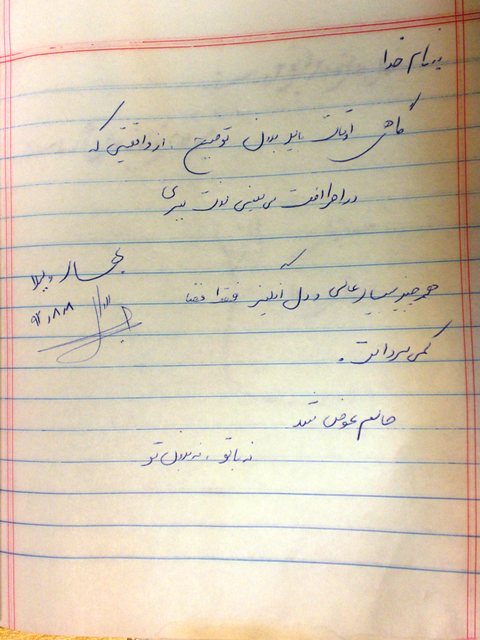 بنام خدا
گاهی اوقات باید بدون توضیح، از واقعیتی که
در اطرافت می‌بینی لذت ببری
همه چیز بسیار عالی و دل انگیز فقط
کمی سرد است.
حالم عوض شد
نه با تو، نه بدون تو
۹۲،۸،۸